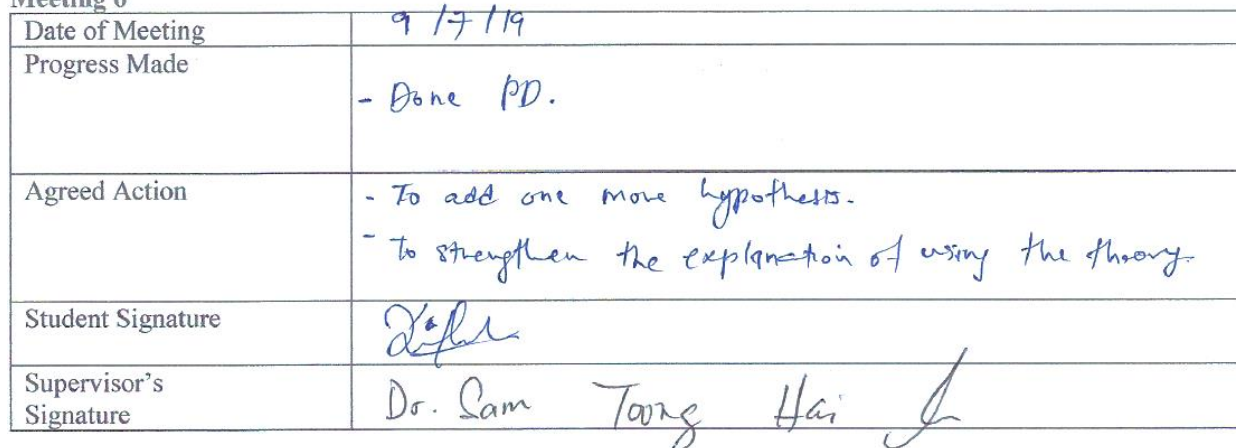 Meeting 6
Date of Meeting 9/7/19
Progress Made
- Done PD.
Agreed Action - To add one more hypothesis.
- To strengthen the explanation of using the theory.
Student Signature
Supervisor's
Signature Dr. Sam Toong Hai